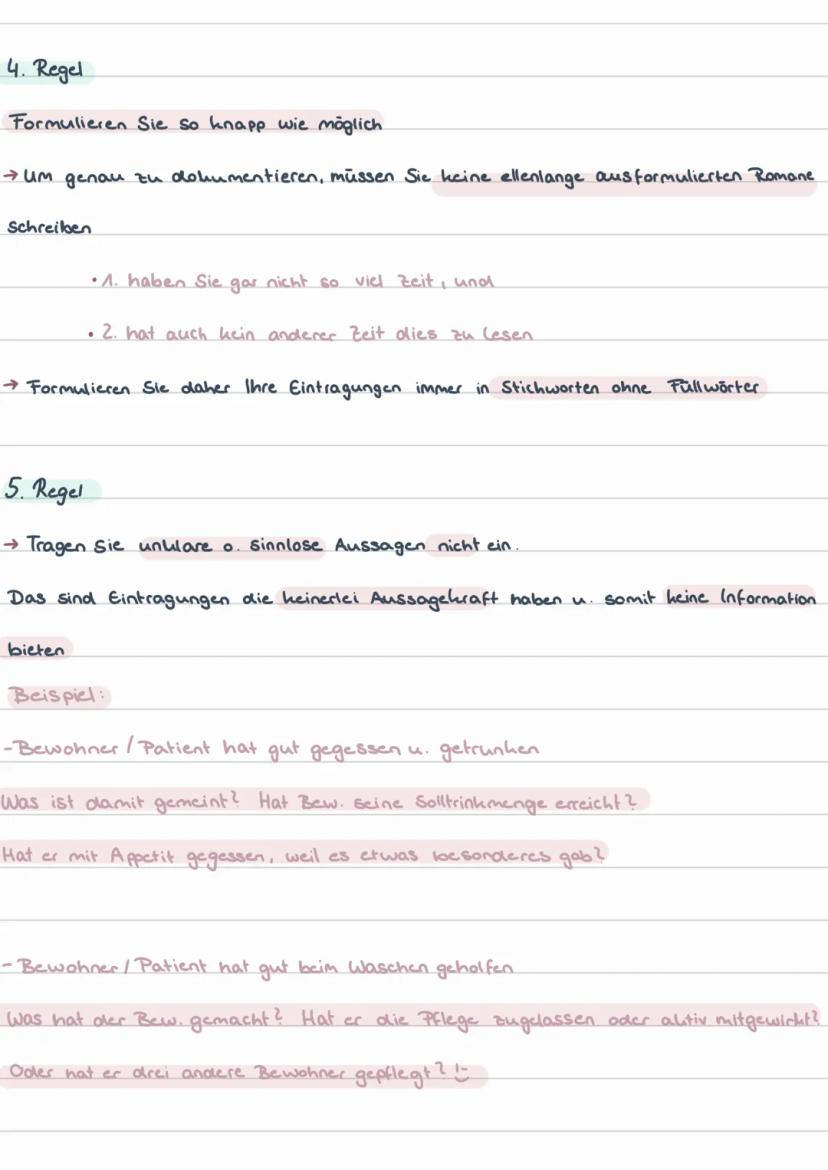 4. Regel
Formulieren Sie so knapp wie möglich
→ Um genau zu dokumentieren, müssen Sie keine ellenlange ausformulierten Romane
schreiben
• 1. haben Sie gar nicht so viel Zeit, und
• 2. hat auch kein anderer Zeit dies zu lesen
→ Formulieren Sie daher Ihre Eintragungen immer in Stichworten ohne Füllwörter
5. Regel
→ Tragen Sie unklare o. sinnlose Aussagen nicht ein.
Das sind Eintragungen die keinerlei Aussagekraft haben u. somit keine Information
bieten
Beispiel:
- Bewohner / Patient hat gut gegessen u. getrunken
Was ist damit gemeint? Hat Bew. seine Solltrinkmenge erreicht?
Hat er mit Appetit gegessen, weil es etwas besonderes gab?
- Bewohner / Patient hat gut beim Waschen geholfen
Was hat der Bew. gemacht? Hat er die Pflege zugelassen oder aktiv mitgewirkt?
Oder hat er drei andere Bewohner gepflegt? !-)